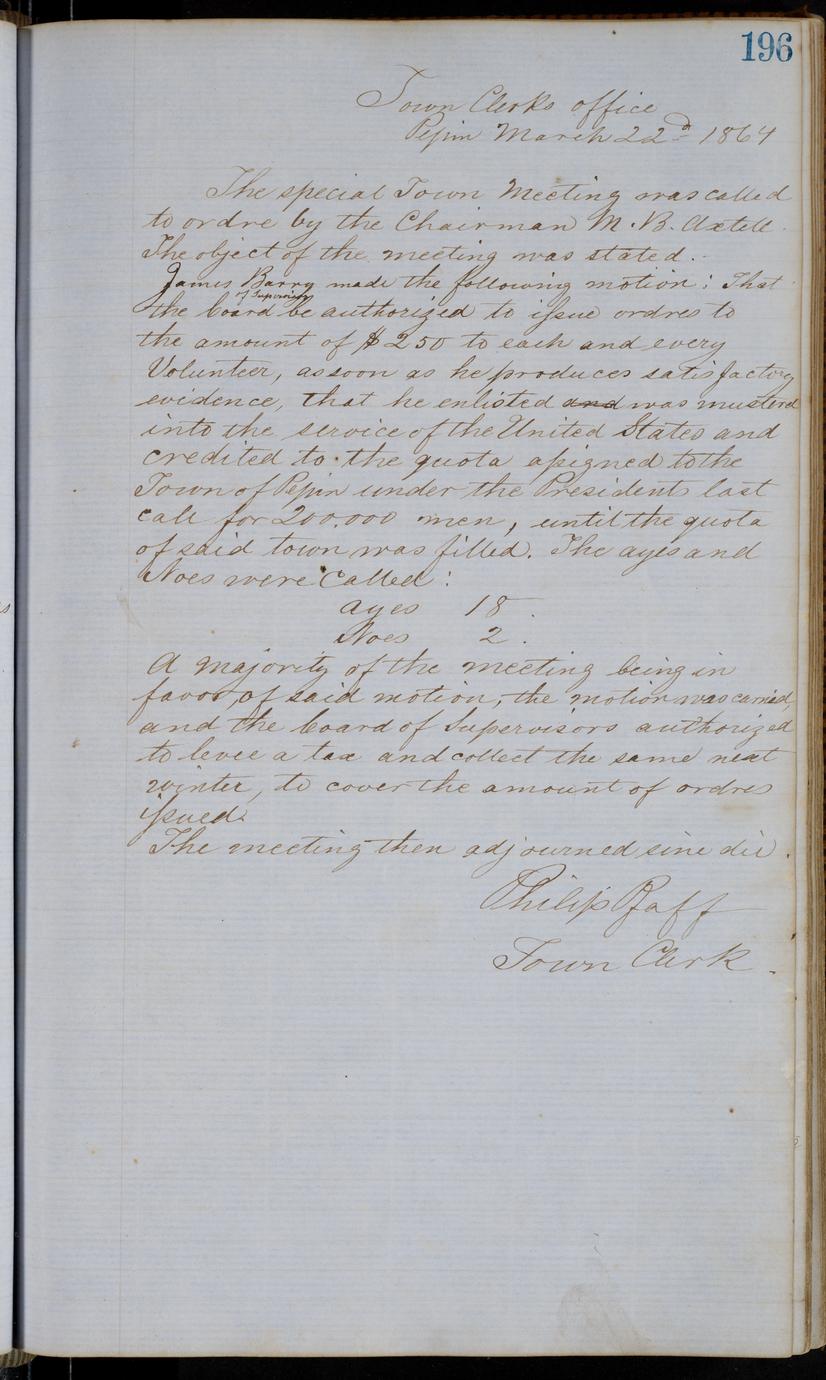 196
Town Clerks office
Pepin March 22d 1864
The special Town Meeting was called
to ordre by the Chairman M. B. Axtell.
The object of the meeting was stated.
James Barry made the following motion: That
of Supervisors
the board be authorized to issue ordres to
the amount of $250 to each and every
Volunteer, as soon as he produces satisfactory
evidence, that he enlisted and was mustered
into the service of the United States and
credited to the quota assigned to the
Town of Pepin under the Presidents last
call for 200,000 men, until the quota
of said town was filled. The ayes and
Noes were called:
ayes 18.
Noes 2.
A majority of the meeting being in
favor, of said motion, the motion was carried,
and the board of Supervisors authorized
to levee a tax and collect the same next
winter, to cover the amount of ordres
issued.
The meeting then adjourned sine die.
Philip Pfaff
Town Clerk.